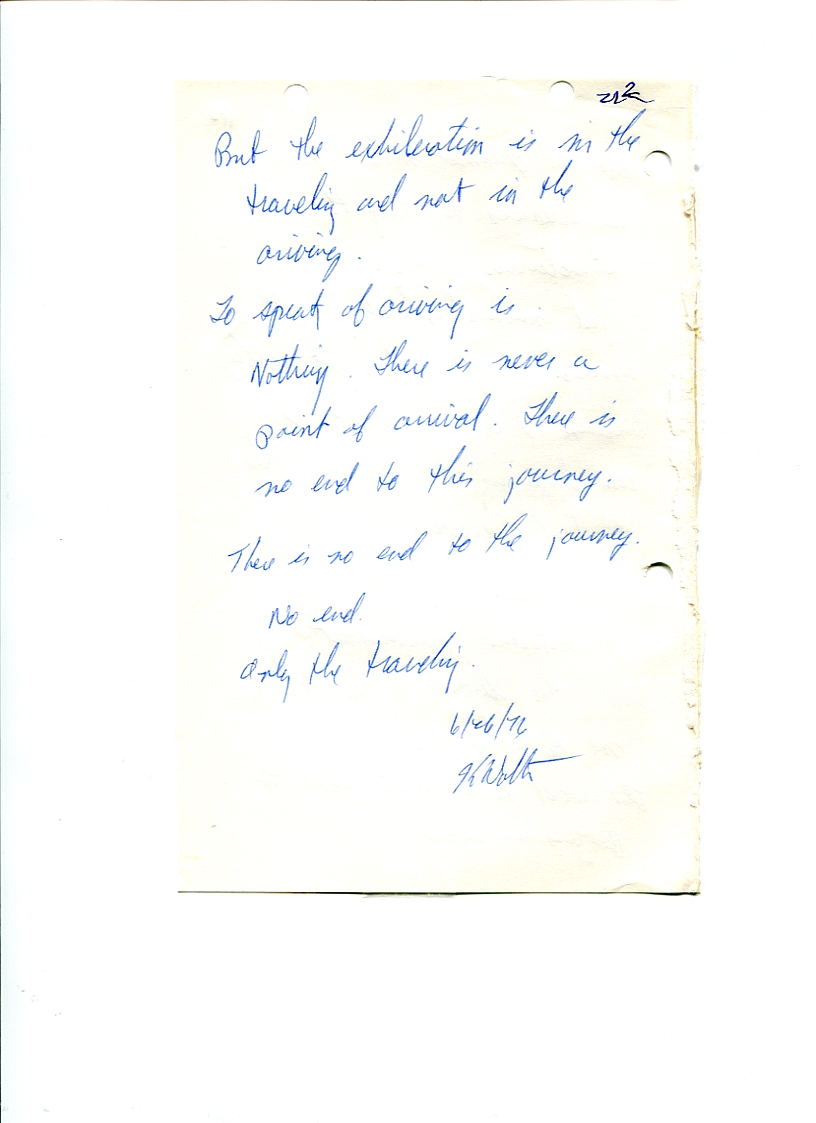 But the exhileration is in the
traveling and not in the
ariving.
To speak of ariving is
Nothing. There is never a
point of arrival. There is
no end to this journey.
There is no end to the journey.
No end.
Only the traveling.
6/26/76